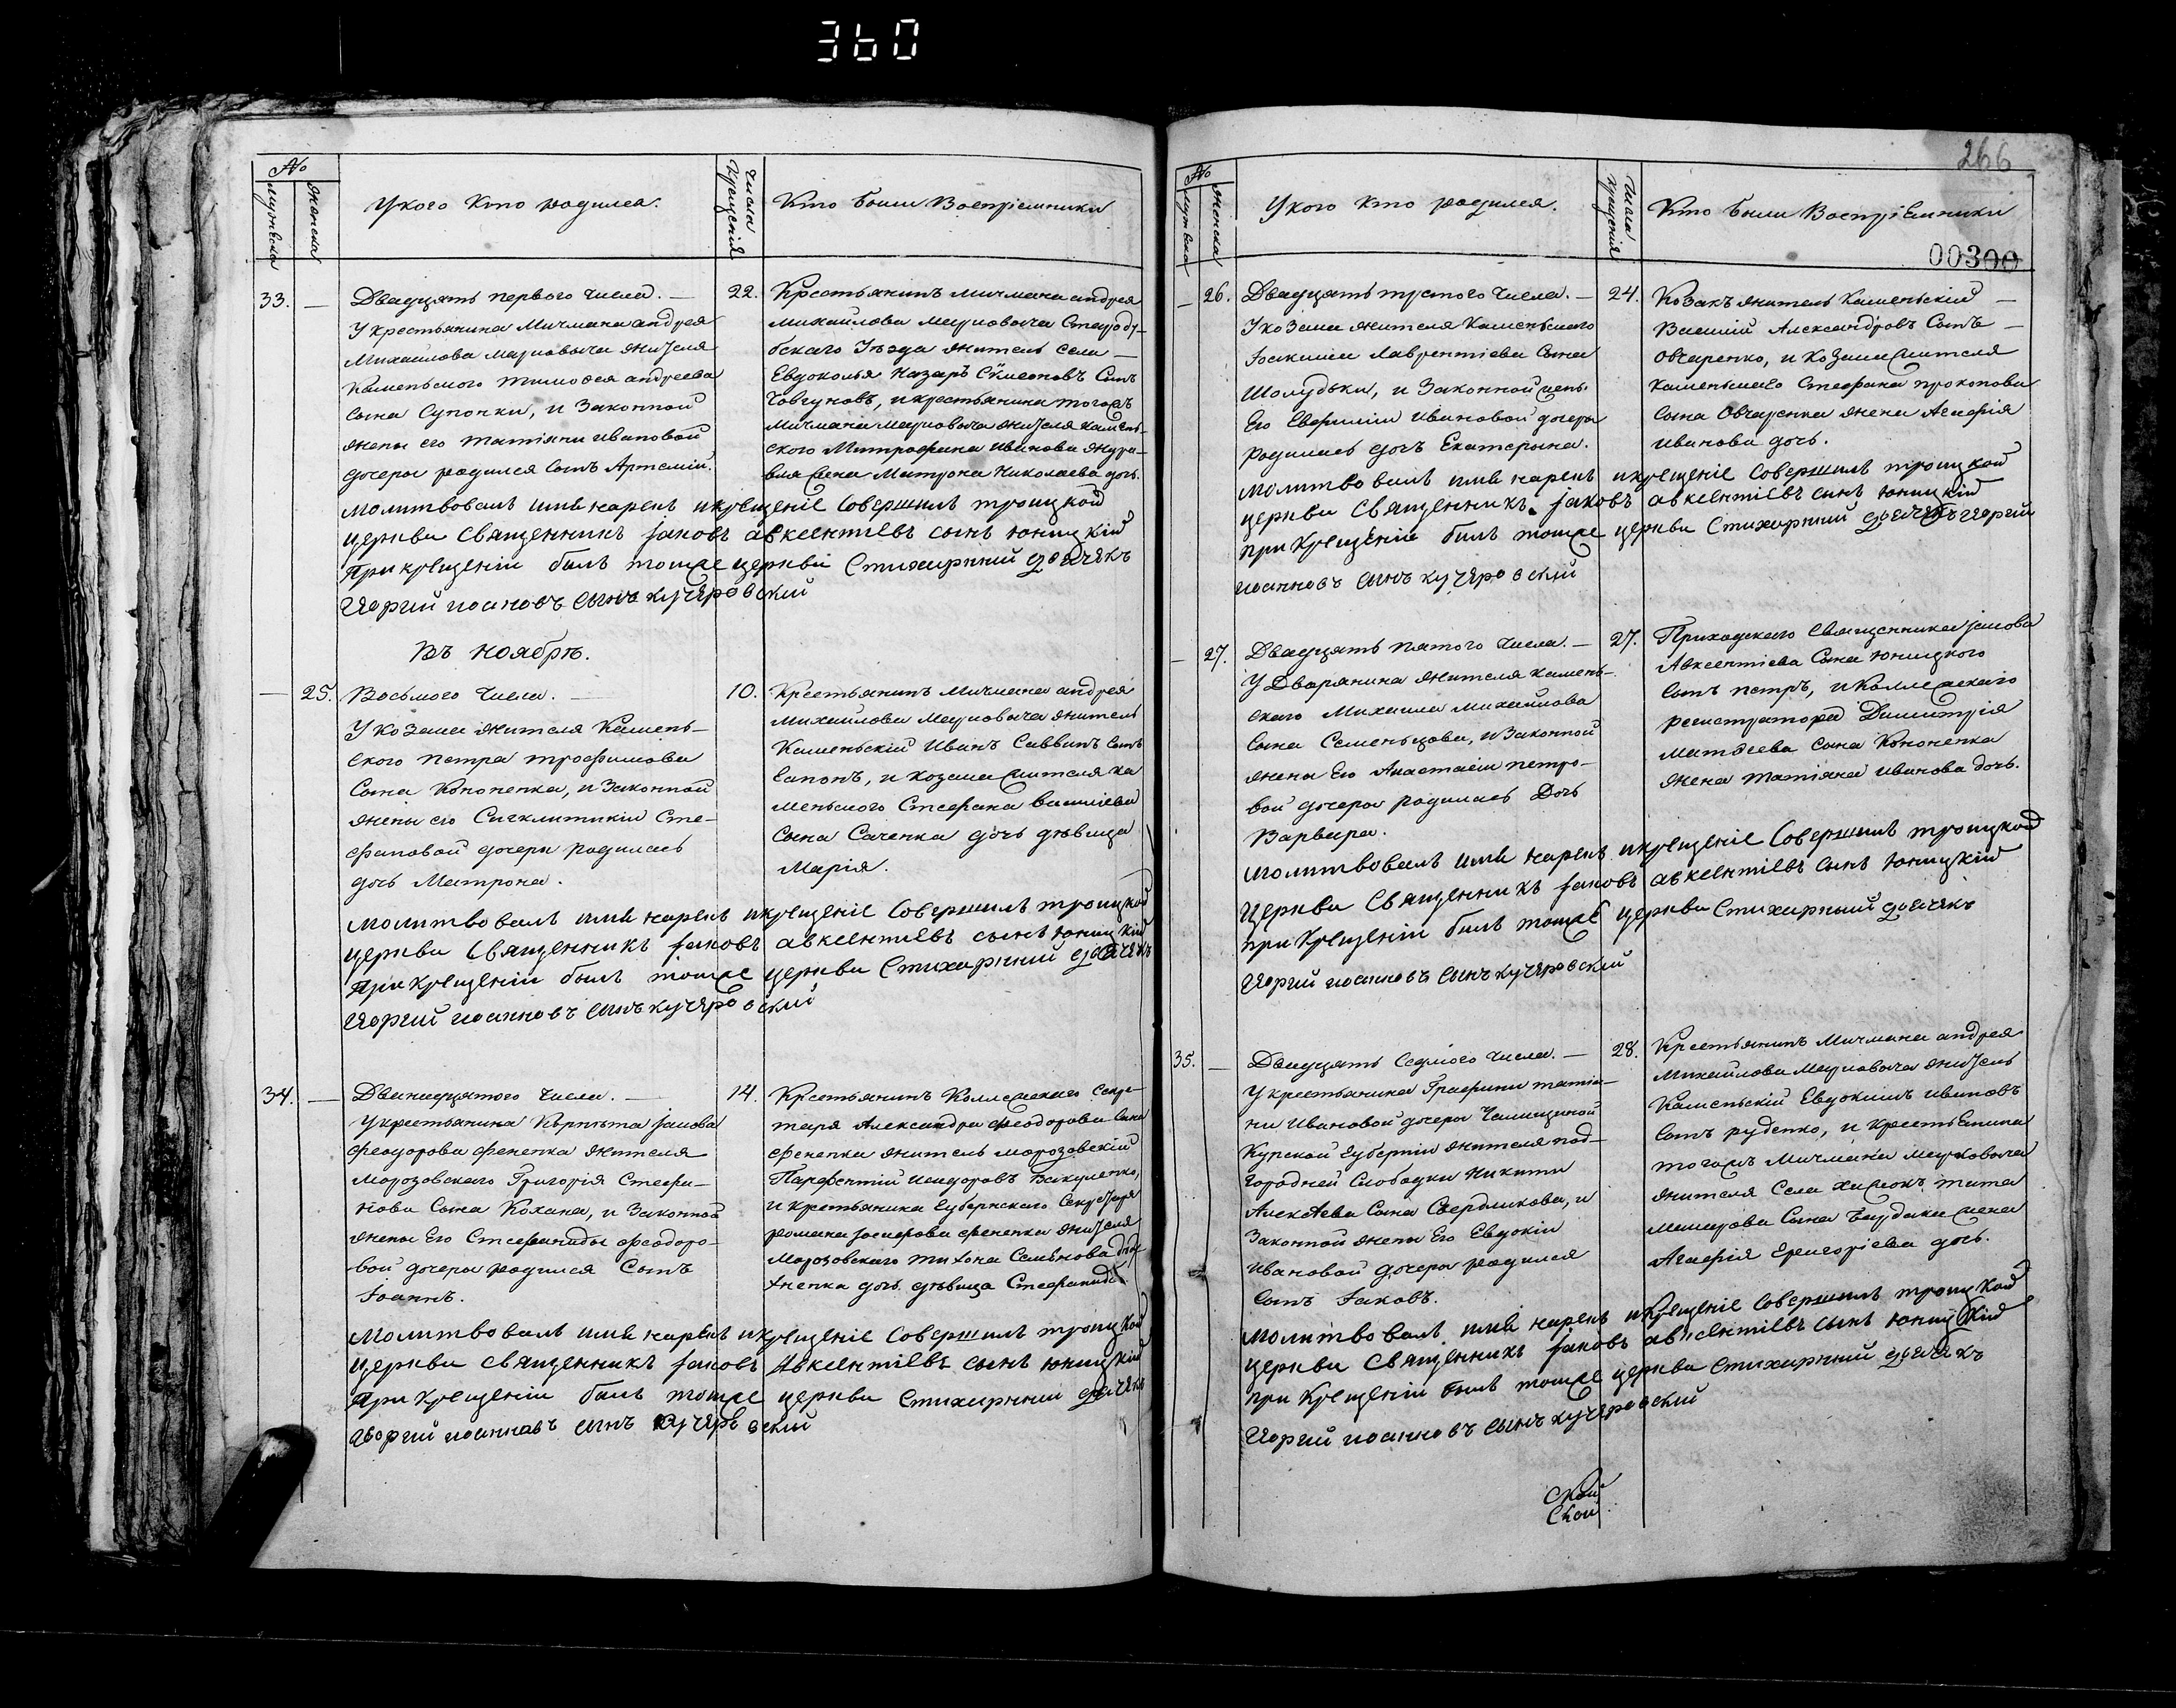 360
266
№
Мужеска
Женска
У кого кто родился.
Числа Крещенія
Кто были Воспріемники
33. — Двадцять первого числа. —
У крестьянина Мичмана андрея
Михайлова Марковича жителя
Каменьского тимофея андреева
сына Супочки, и Законной
жены его татіяни ивановой
дочери родился сынъ Артемій.
22. Крестьянинъ мичмана андрея
михайлова марковича Стародубскаго Уѣзда житель села —
Евдоколья Назаръ Сѵмеоновъ Сынъ
Човгуновъ, и крестьянина тогожъ
Мичмана марковича жителя каменьского Митрофана Иванова жена Матрона Николаева дочь.
молитвовалъ имя нарекъ и крещеніе Совершилъ троицкой
церкви Священникъ јаковъ авксентіевъ сынъ юницкій
При крещеніи былъ тоиже церкви Стихарний дьячекъ
Георгий иоановъ сынъ кучеровский
Въ Ноябрѣ.
— 25. Восьмого числа. —
У козака жителя Каменьского петра трофимова
Сына Кононенка, и Законной
жены его Сигклитикіи Стефановой дочери родилась
дочь Матрона.
10. Крестьянинъ Мичмана андрея
Михайлова Марковича житель
Каменьскій Иванъ Саввинъ сынъ
Сапонъ, и козака жителя каменьского Стефана василіева
Сына Саченка дочь дѣвица
Марія.
молитвовалъ имя нарекъ и крещеніе Совершилъ троицкой
церкви Священникъ јаковъ авксентіевъ сынъ юницкій
При крещеніи былъ тоиже церкви Стихарний дьячекъ
Георгий иоанновъ сынъ кучеровский
34. — Двенадцятого числа. —
У крестьянина Корнета јакова
феодорова фененка жителя
морозовского Григорія Стефанова Сына Кохана, и Законной
жены Его Стефаниды феодоровой дочери родился Сынъ
Іоаннъ.
14. Крестьянинъ Коллежского Секретаря Александра феодорова сына
фененка житель морозовскій
Парфентій Исидоровъ Вакуленко,
и крестьянина Губернского Секретаря
романа јосифова фененка жителя
Морозовского тихона Семёнова дочь дѣвица Стефанида.
Молитвовалъ имя нарекъ и крещеніе Совершилъ троицкой
церкви священникъ јаковъ Авксентіевъ сынъ юницкій
При крещеніи былъ тоиже церкви Стихарний дьячекъ
Георгий иоанновъ сынъ кучеровский
№
Мужеска
Женска
У кого кто родился.
Числа Крещенія
Кто были Воспріемники
00300
— 26. Двадцять третого числа. —
У козака жителя Каменьского
Іоакима Лаврентіева Сына
Шолудьки, и Законной жены
Его Евфиміи Ивановой дочери
родилась дочь Екатерина.
24. Козакъ житель Каменьскій —
Василій Александровъ Сынъ —
Овчаренко, и Козака жителя
каменьского Стефана прокопова
Сына Овчаренка жена Агафія
Иванова дочь.
молитвовалъ имя нарекъ и крещеніе Совершилъ троицкой
церкви Священникъ јаковъ авксентіевъ сынъ юницкій
при крещеніи былъ тоиже церкви Стихарний дьячекъ Георгий
иоанновъ сынъ кучеровский
— 27. Двадцять пятого числа. —
У Дворянина жителя каменьского Михаила михайлова
Сына Семеньцова, и Законной
жены Его Анастасіи петровой дочери родилась Дочь
Варвара.
27. Приходского Священника јакова
Авксентіева Сына Юницкого
Сынъ петръ, и Коллежского
регистратора Димитрія
Матвеева сына Кононенка
жена татіяна иванова дочь.
молитвовалъ имя нарекъ и крещеніе Совершилъ троицкой
церкви Священникъ јаковъ авксентіевъ сынъ юницкій
при крещеніи былъ тоиже церкви Стихарний дьячекъ
Георгий иоанновъ сынъ кучеровский
35. — Двадцять Седмого числа. —
У крестьянина Графини татіяни Ивановой дочери
Курской Губерніи жителя подгородней Слободки Никити
Алексѣева Сына Свердликова, и
Законной жены Его Евдокіи
Ивановой дочери родился
Сынъ Іаковъ.
28. Крестьянинъ Мичмана андрея
Михайлова Марковича житель
Каменьскій Евдокимъ ивановъ
Сынъ руденко, и крестьянина
тогожъ Мичмана Марковича
жителя Села тита
Сына жена
Агафія Григоріева дочь.
молитвовалъ имя нарекъ и крещеніе Совершилъ троицкой
церкви Священникъ јаковъ авксентіевъ сынъ юницкій
при крещеніи былъ тоиже церкви стихарний дьячекъ
Георгий иоанновъ сынъ кучеровский
ской
ской